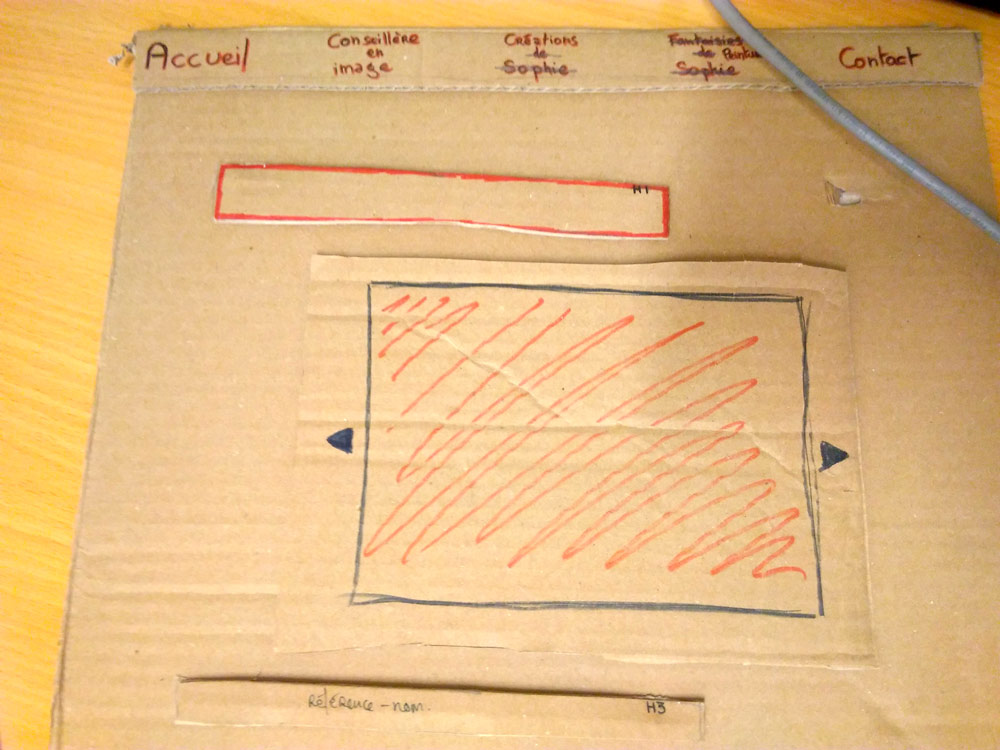 Accueil
Conseillère
en
image
Créations
de
Sophie
Fantaisies
de Peinture
Sophie
Contact
H1
Référence - nom.
H3